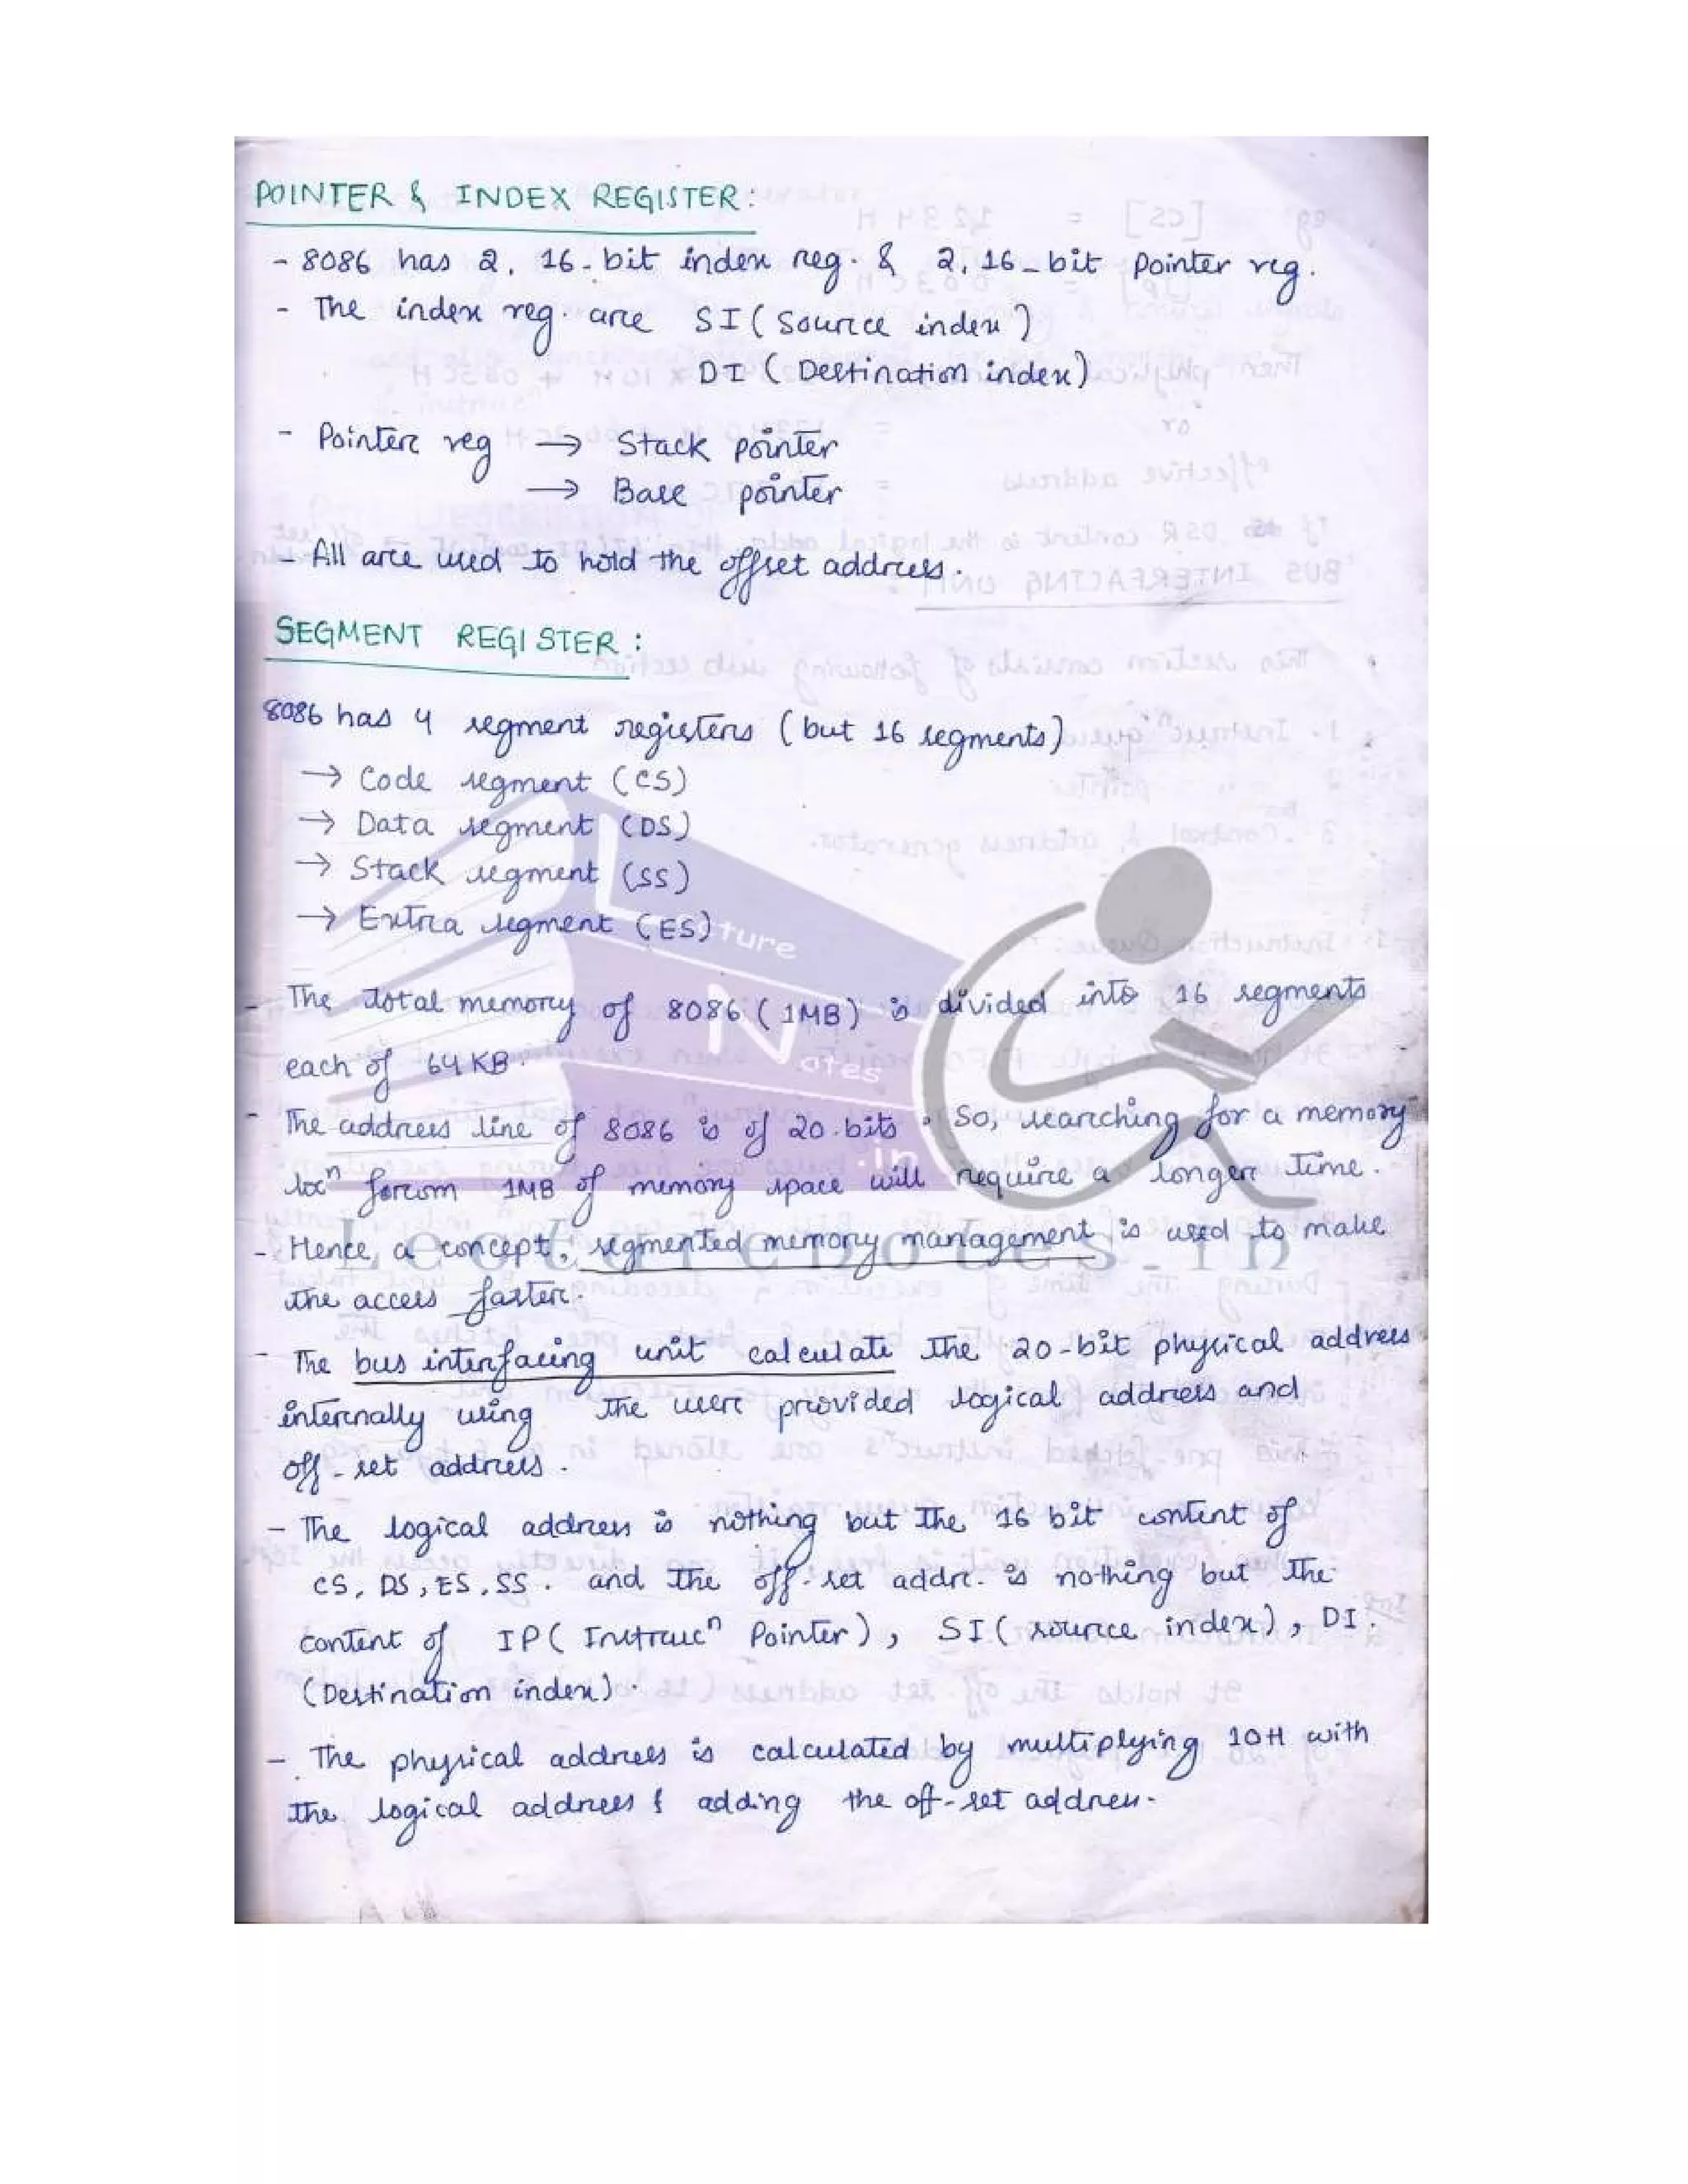 POINTER & INDEX REGISTER:
- 8086 has 2, 16-bit index reg. & 2, 16-bit pointer reg.
- The index reg. are SI (Source index)
DI (Destination index)
- Pointer reg → Stack pointer
→ Base pointer
- All are used to hold the offset address.
SEGMENT REGISTER:
8086 has 4 segment registers (but 16 segments)
→ Code segment (CS)
→ Data segment (DS)
→ Stack segment (SS)
→ Extra segment (ES)
- The total memory of 8086 (1MB) is divided into 16 segments
each of 64 KB.
- The address line of 8086 is of 20 bits. So, searching for a memory
locⁿ from 1MB of memory space will require a longer time.
- Hence a concept, segmented memory management is used to make
the access faster.
- The bus interfacing unit calculate the 20-bit physical address
internally using the user provided logical address and
off-set address.
- The logical address is nothing but the 16 bit content of
CS, DS, ES, SS. and the off-set addr. is nothing but the
content of IP (Instrucⁿ Pointer), SI (source index), DI.
(Destination index).
- The physical address is calculated by multiplying 10H with
the logical address & adding the off-set address.
Lecture
Notes
.in
LectureNotes.in